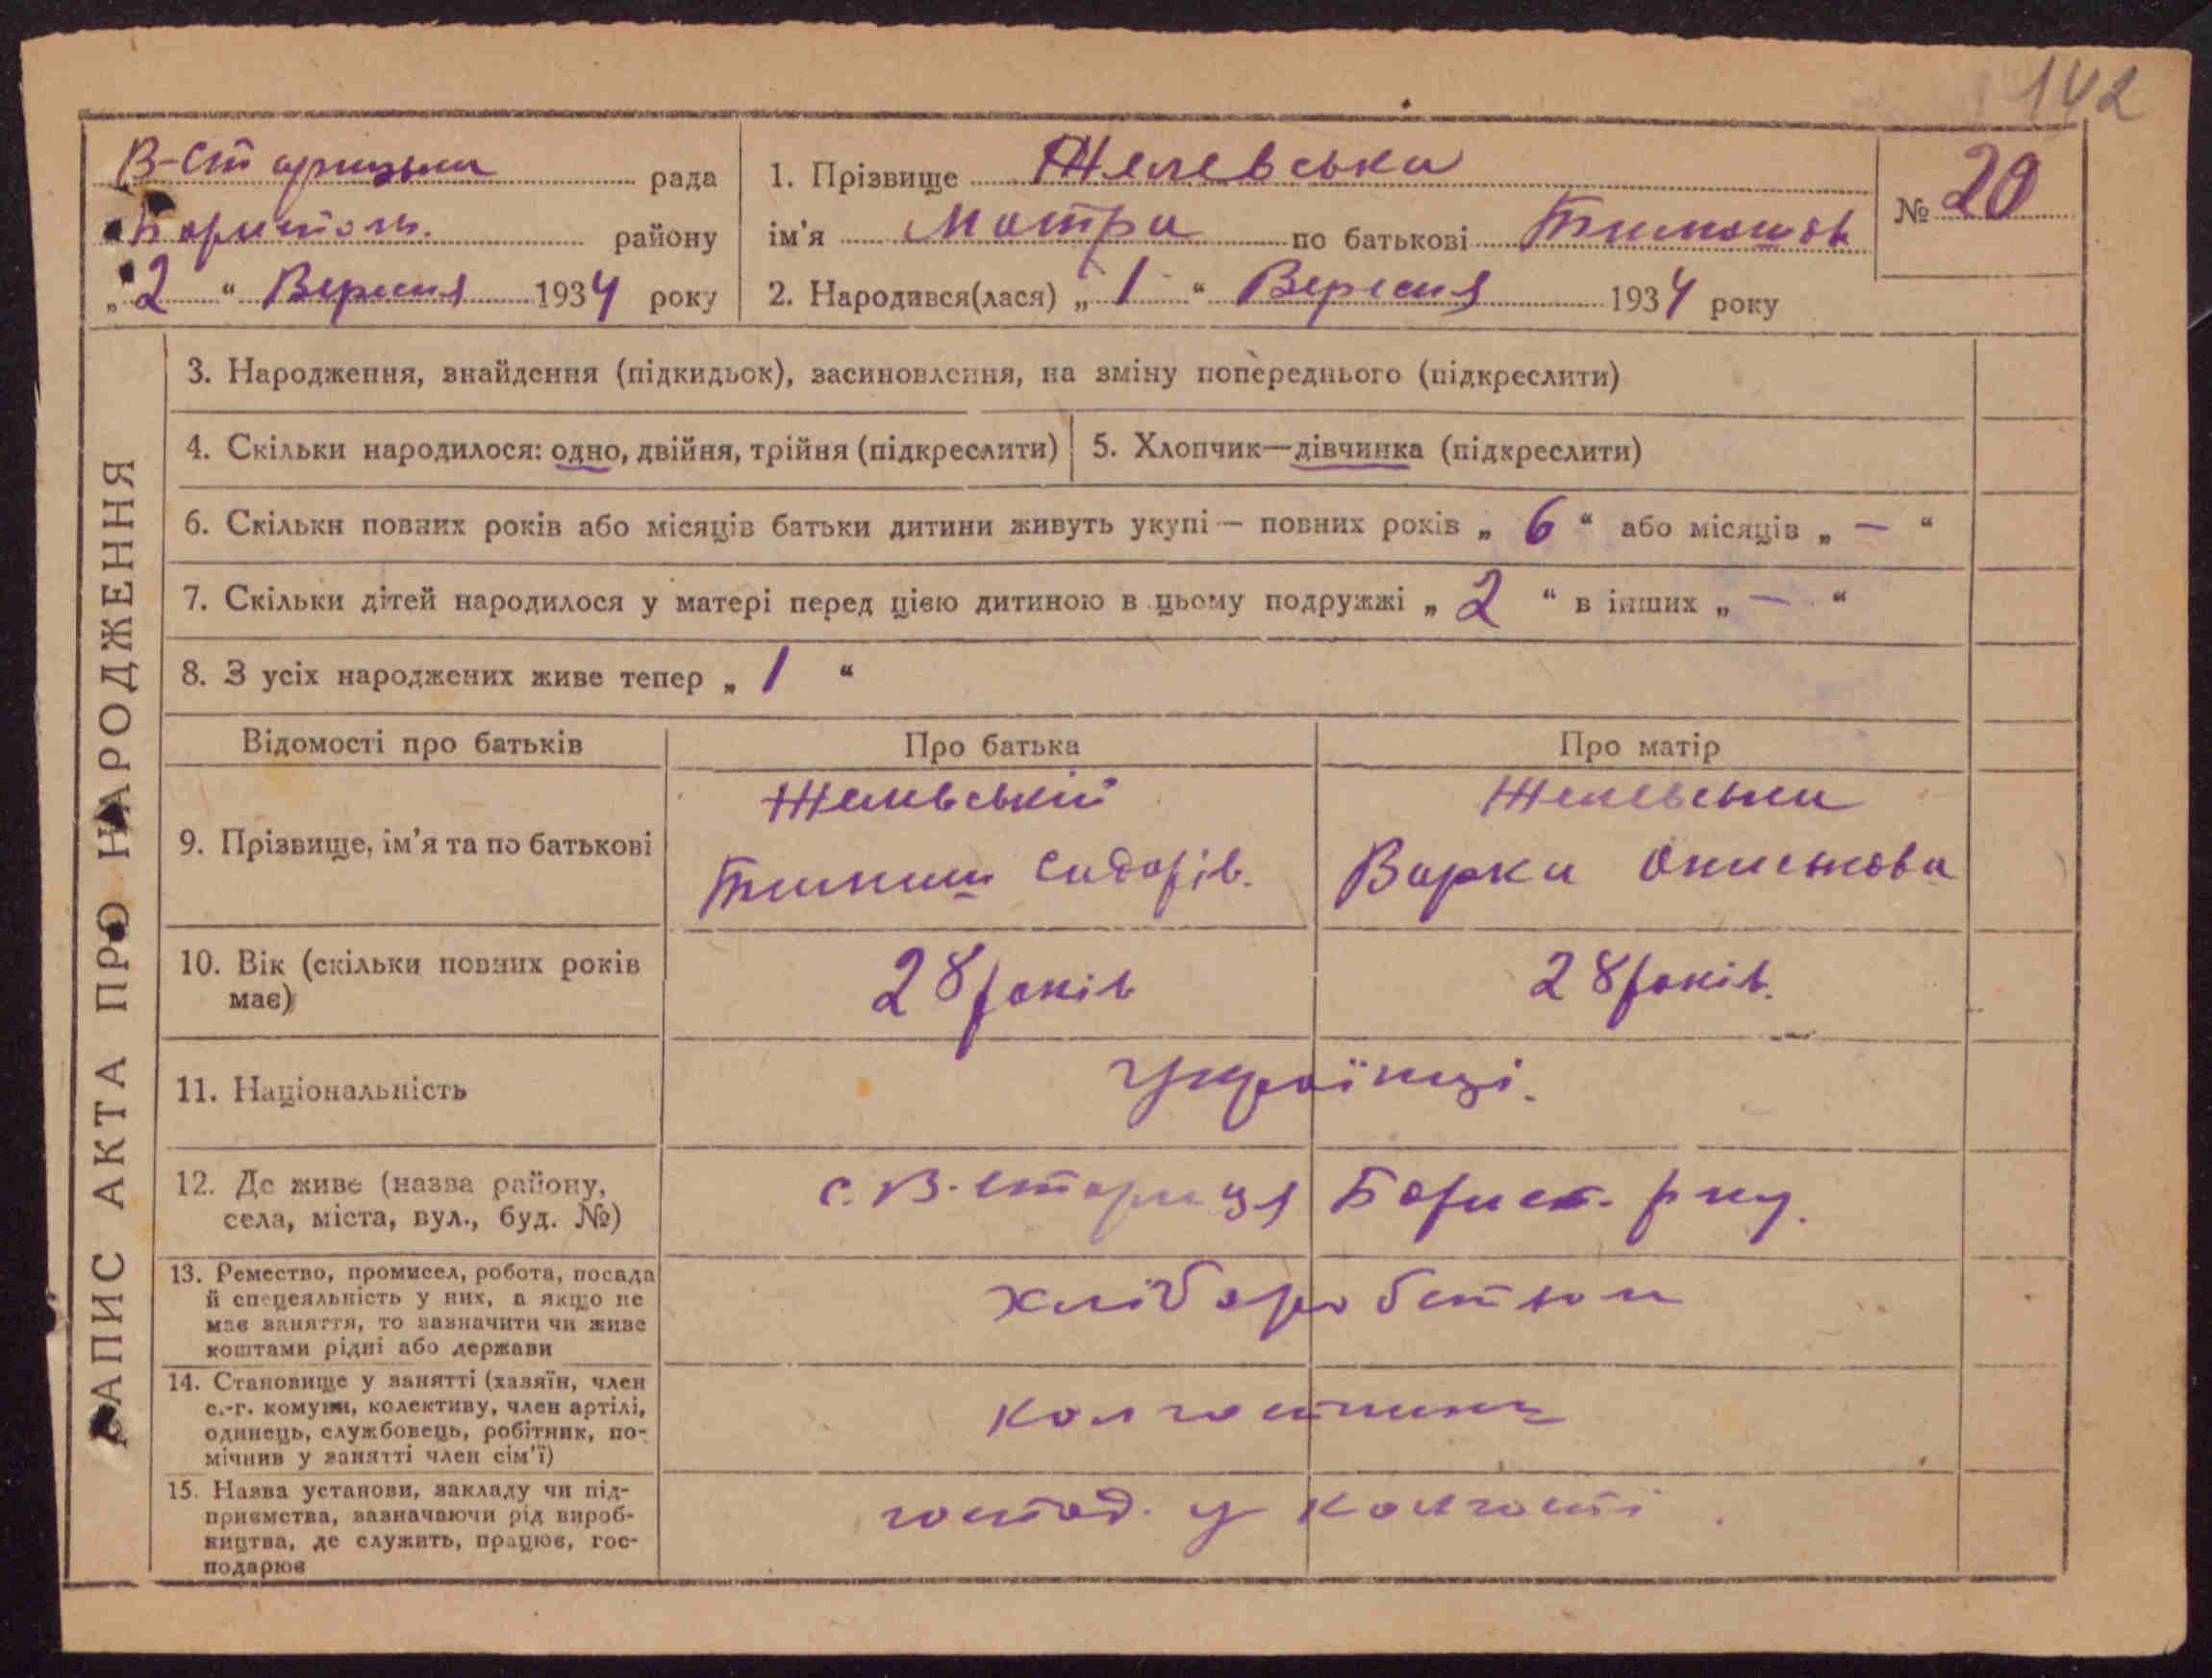 142
В-Старицька рада
Бориспольс. району
„ 2 “ Вересня 1934 року
1. Прізвище Желевська
ім'я Мотра по батькові Тимошов
2. Народився(лася) „ 1 “ Вересня 1934 року
№ 20
ЗАПИС АКТА ПРО НАРОДЖЕННЯ
3. Народження, знайдення (підкидьок), засиновлення, на зміну попереднього (підкреслити)
4. Скільки народилося: одно, двійня, трійня (підкреслити)
5. Хлопчик—дівчинка (підкреслити)
6. Скільки повних років або місяців батьки дитини живуть укупі — повних років „ 6 “ або місяців „ — “
7. Скільки дітей народилося у матері перед цією дитиною в цьому подружжі „ 2 “ в інших „ — “
8. З усіх народжених живе тепер „ 1 “
Відомості про батьків
Про батька
Про матір
9. Прізвище, ім'я та по батькові
Желевській
Тимиш Сидорів.
Желевська
Варка Онисімова
10. Вік (скільки повних років
має)
28 років
28 років.
11. Національність
Українці.
12. Де живе (назва району,
села, міста, вул., буд. №)
с. В. Стариця Борисп. р-ну.
13. Ремество, промисел, робота, посада
й спецеяльність у них, а якщо не
має заняття, то зазначити чи живе
коштами рідні або держави
хліборобством
14. Становище у занятті (хазяїн, член
с.-г. комуни, колективу, член артілі,
одинець, службовець, робітник, по-
мічнив у занятті член сім'ї)
колгоспники
15. Назва установи, закладу чи під-
приємства, вазначаючи рід вироб-
ництва, де служить, працює, гос-
подарює
господ. у колгоспі.